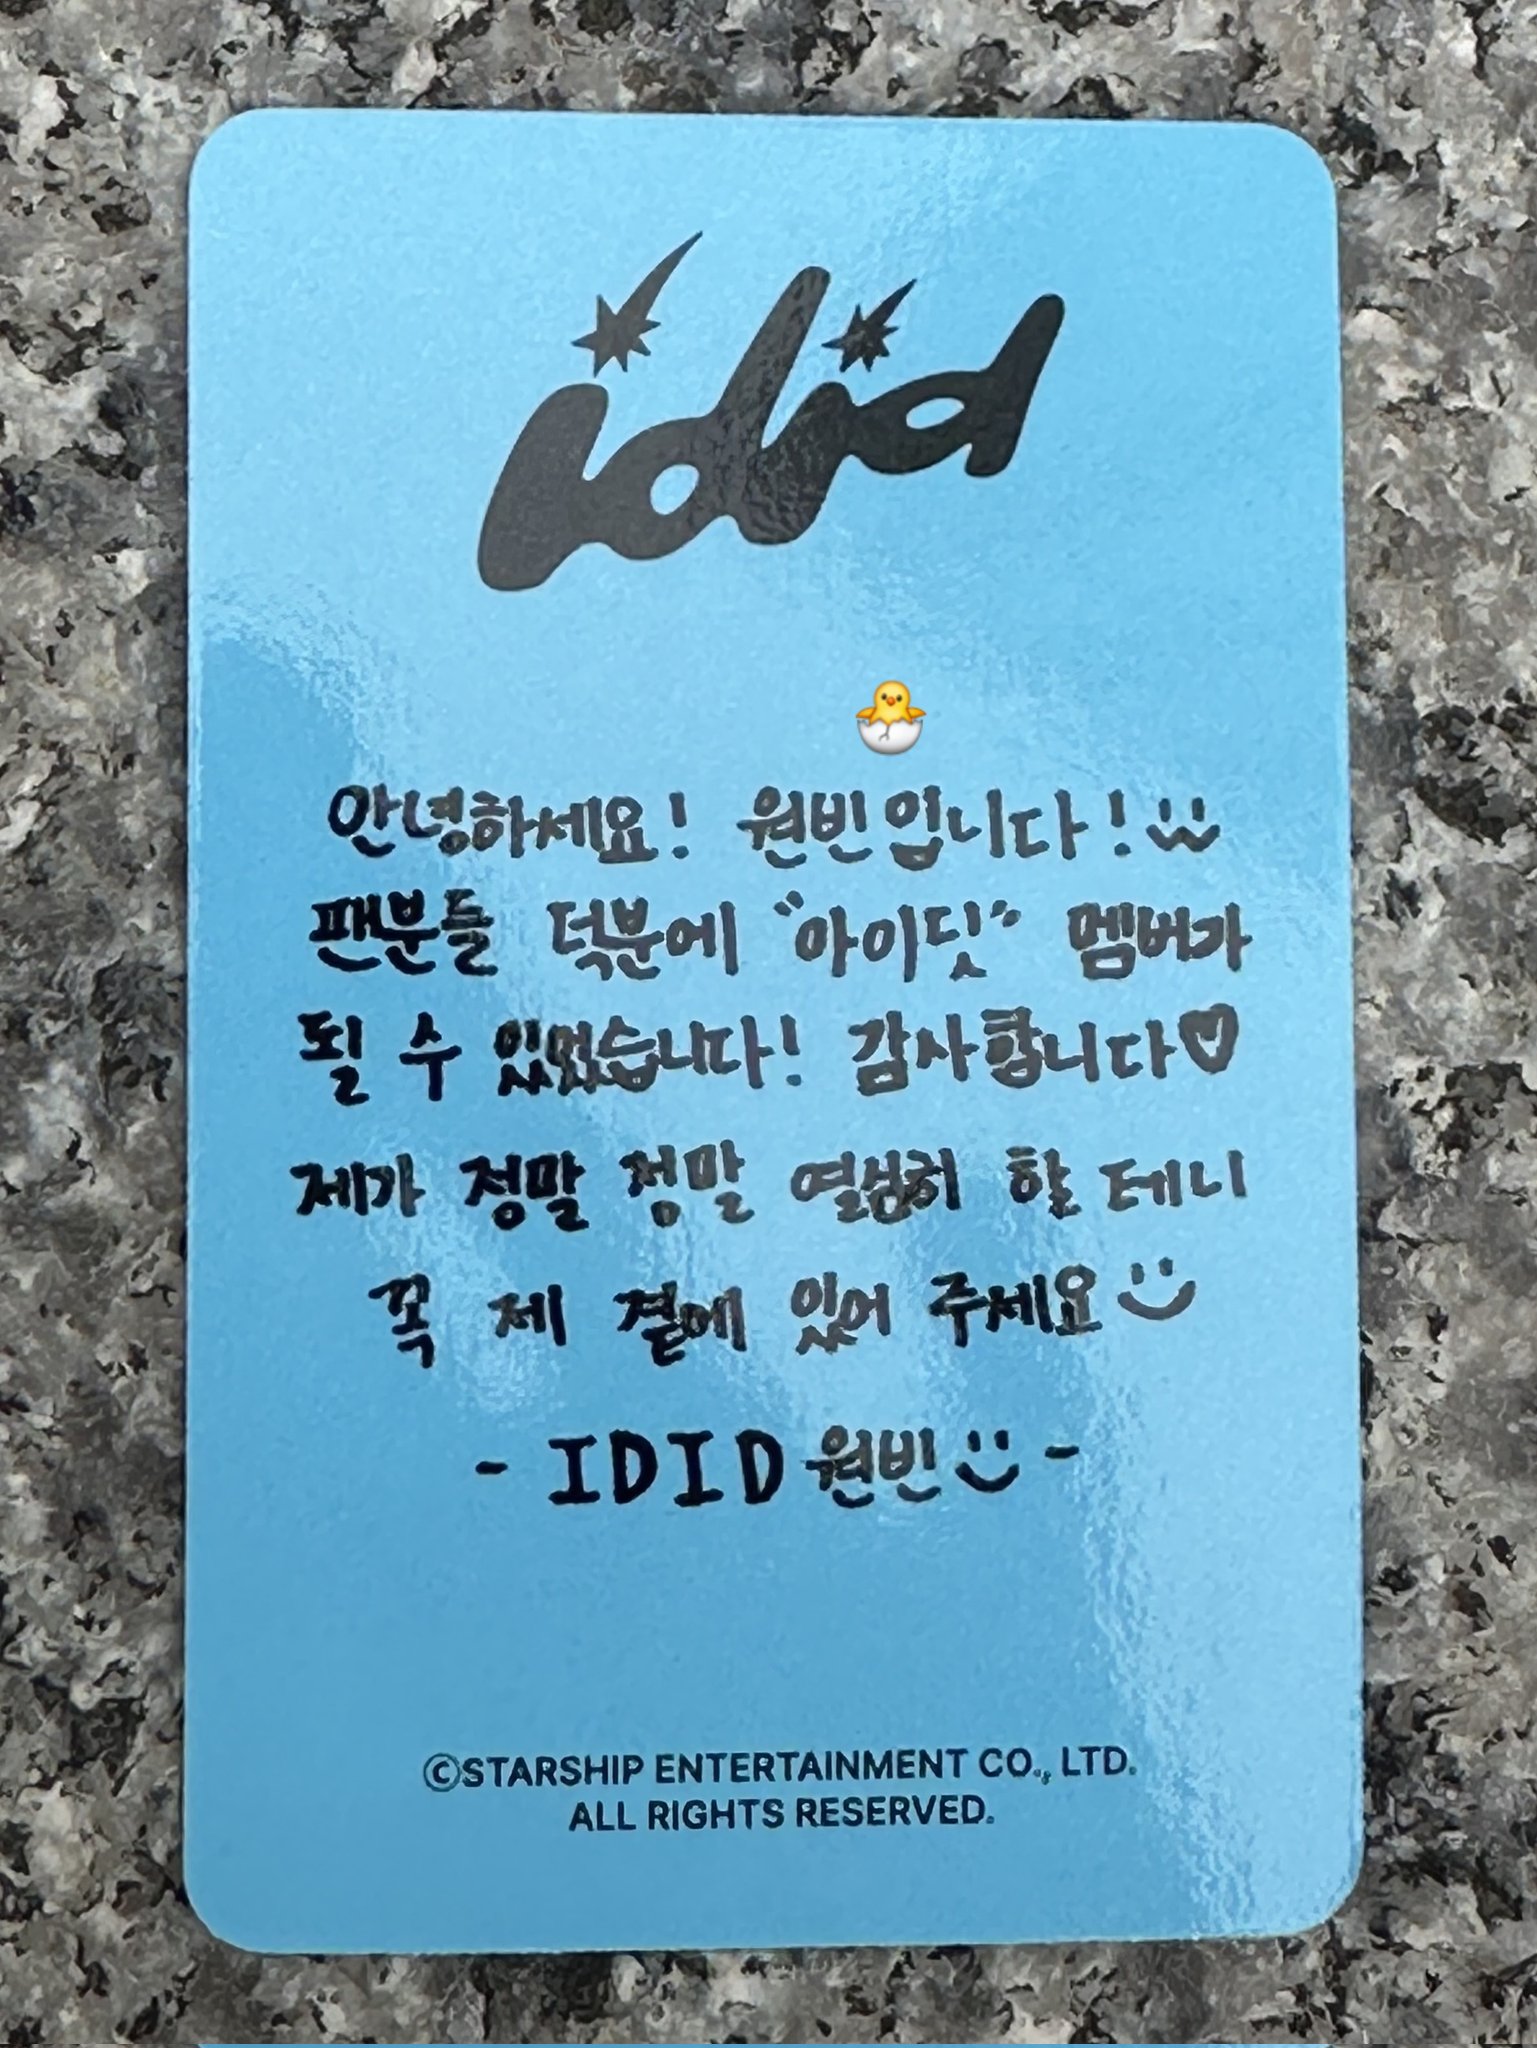 idid
안녕하세요! 원빈입니다!
팬분들 덕분에 "아이딧" 멤버가
될 수 있었습니다! 감사합니다♡
제가 정말 정말 열심히 할 테니
꼭 제 곁에 있어 주세요
- IDID 원빈 -
©STARSHIP ENTERTAINMENT CO., LTD.
ALL RIGHTS RESERVED.